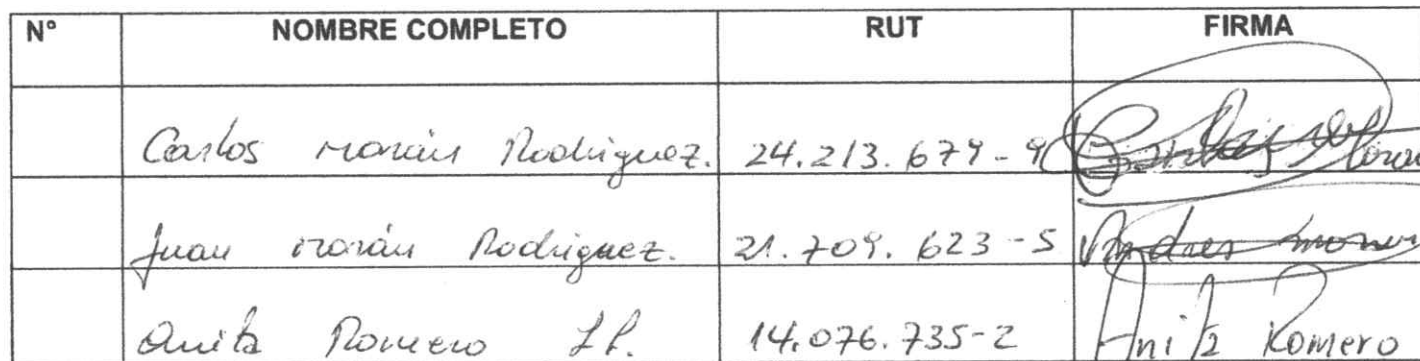 N° NOMBRE COMPLETO RUT FIRMA
Carlos Morán Rodriguez. 24.213.679-9
Juan Morán Rodriguez. 21.709.623-5
Anita Romero 14.076.735-2 Anita Romero